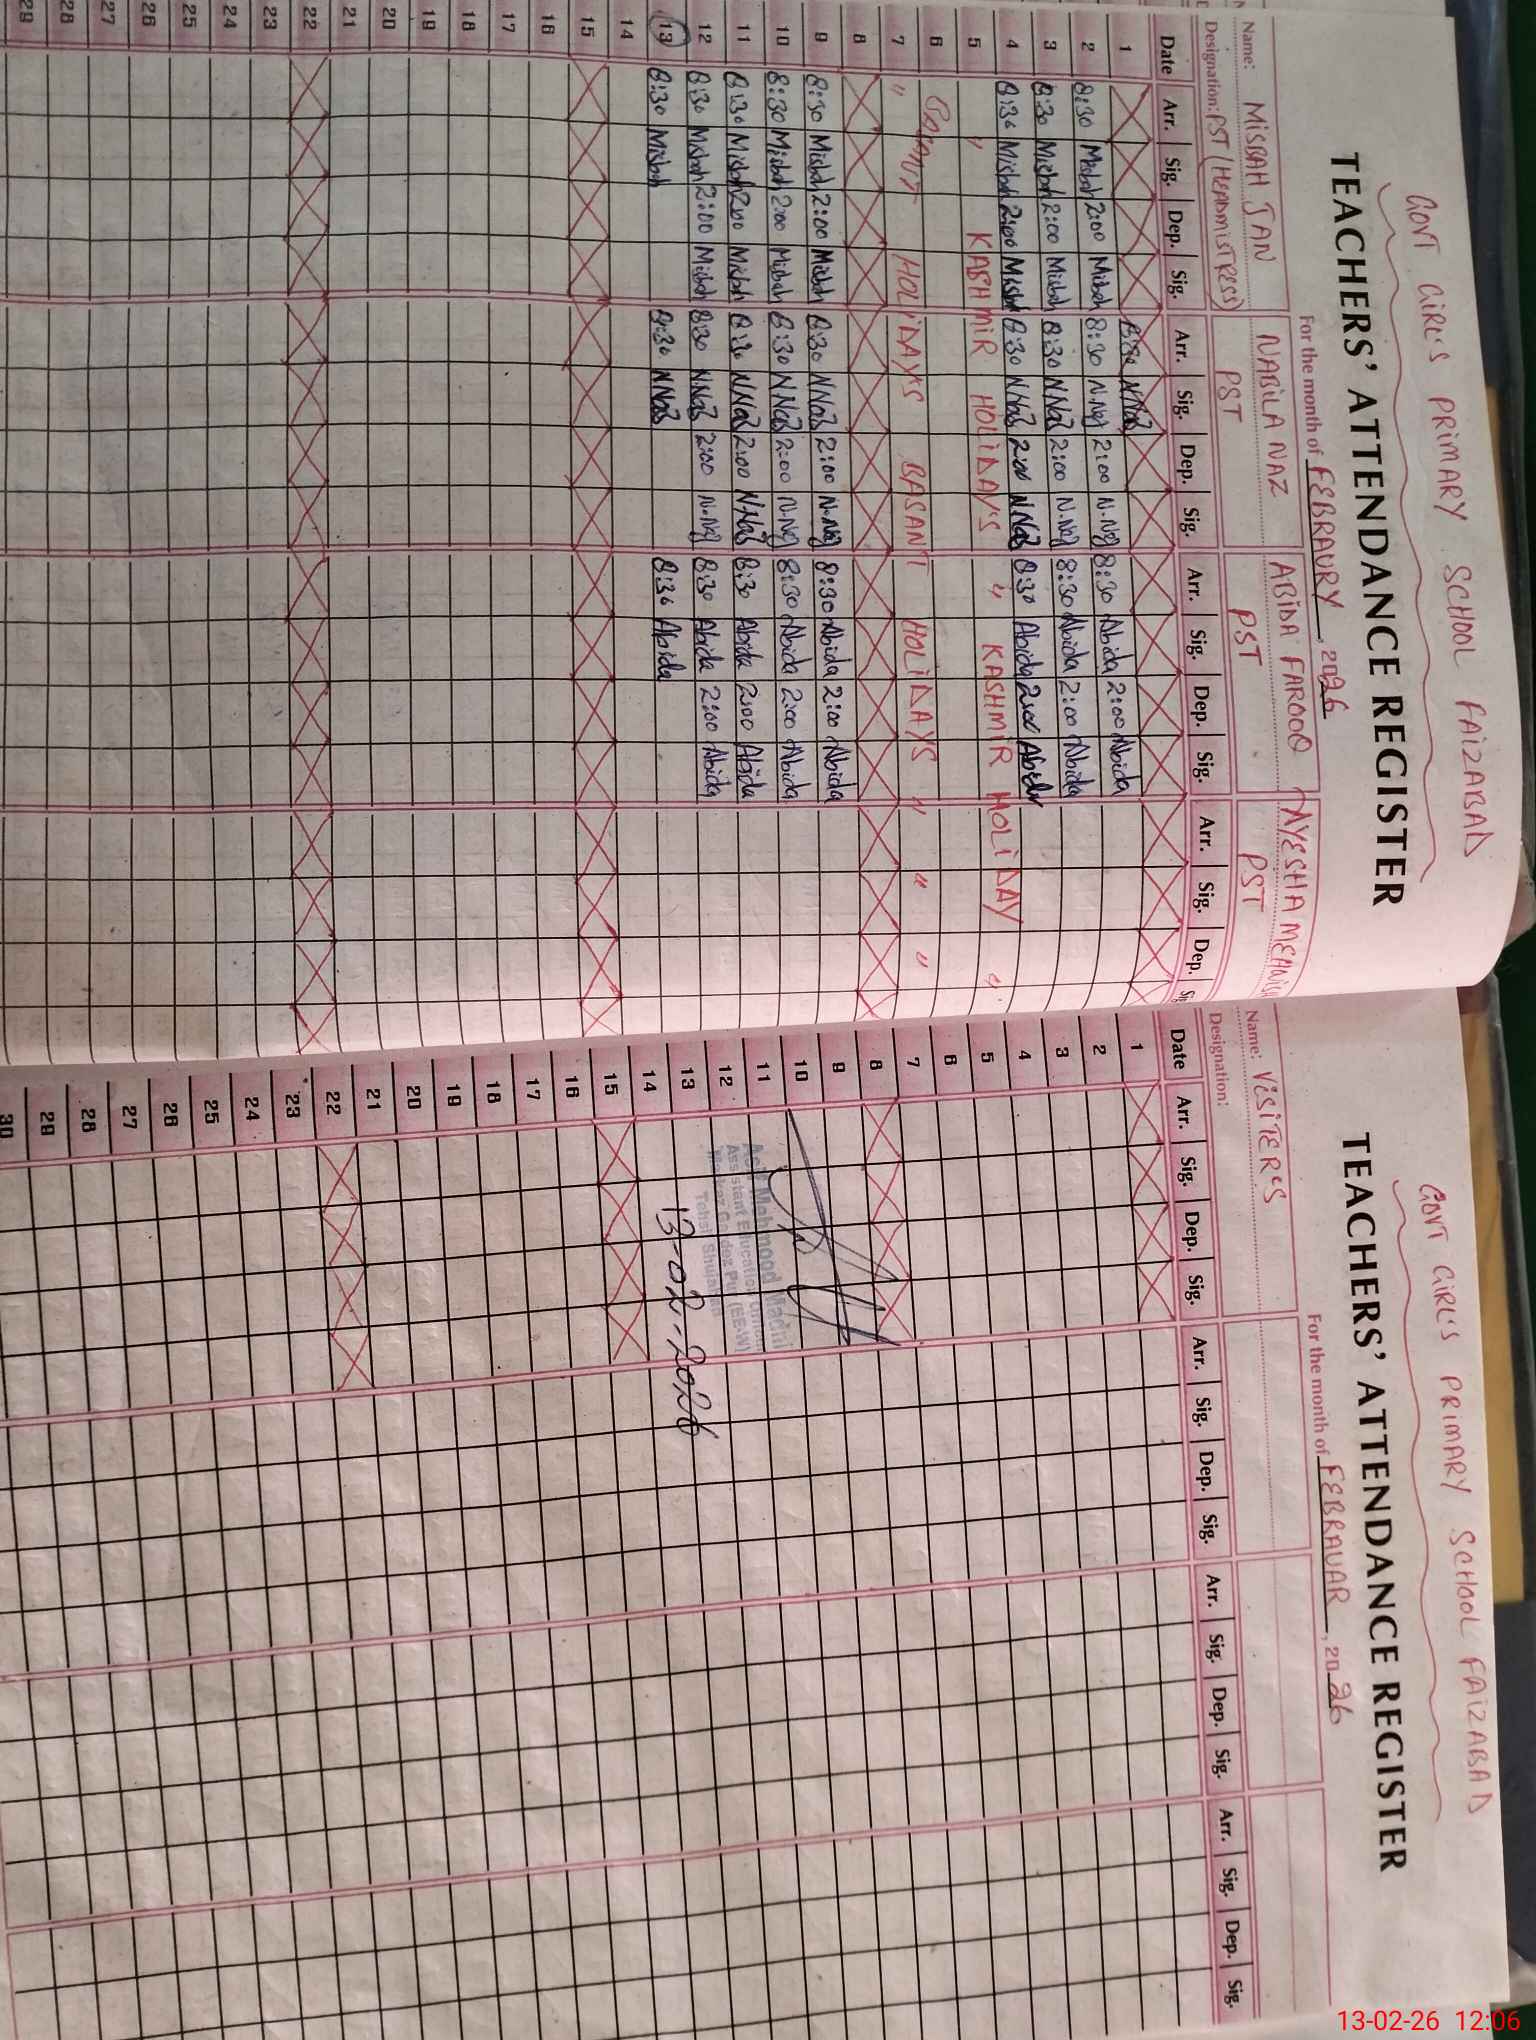 GOVT GiRL'S PRiMARY SCHOOL FAiZABAD
TEACHERS' ATTENDANCE REGISTER
For the month of FEBRAURY, 2026
Name: MISBAH JAN NABiLA NAZ ABiDA FAROOQ AYESHA MEHWiSH
Designation: PST (HEADMiSTRESS) PST PST PST
Date Arr. Sig. Dep. Sig. Arr. Sig. Dep. Sig. Arr. Sig. Dep. Sig. Arr. Sig. Dep. Sig
1 8:30 NNaz
2 8:30 Misbah 2:00 Misbah 8:30 N.Naz 2:00 N.Naz 8:30 Abida 2:00 Abida
3 8:30 Misbah 2:00 Misbah 8:30 NNaz 2:00 N.Naz 8:30 Abida 2:00 Abida
4 8:30 Misbah 2:00 Misbah 8:30 NNaz 2:00 NNaz 8:30 Abida 2:00 Abida
5 " KASHMiR HOLiDAY'S " KASHMiR HOLiDAY "
6
7 " BASANT HOLiDAY'S BASANT HOLiDAYS " " "
8
9 8:30 Misbah 2:00 Misbah 8:30 NNaz 2:00 N.Naz 8:30 Abida 2:00 Abida
10 8:30 Misbah 2:00 Misbah 8:30 NNaz 2:00 N.Naz 8:30 Abida 2:00 Abida
11 8:30 Misbah 2:00 Misbah 8:30 NNaz 2:00 NNaz 8:30 Abida 2:00 Abida
12 8:30 Misbah 2:00 Misbah 8:30 NNaz 2:00 N.Naz 8:30 Abida 2:00 Abida
13 8:30 Misbah 8:30 NNaz 8:30 Abida
14
15
16
17
18
19
20
21
22
23
24
25
26
27
28
29
GOVT GiRL'S PRiMARY SCHOOL FAiZABAD
TEACHERS' ATTENDANCE REGISTER
For the month of FEBRAUAR, 2026
Name: ViSiTER'S
Designation:
Date Arr. Sig. Dep. Sig. Arr. Sig. Dep. Sig. Arr. Sig. Dep. Sig. Arr. Sig. Dep. Sig.
1
2
3
4
5
6
7
8
9
10
11 Mahmood Machi
12 Assistant Education
13 13-02-2026
14
15
16
17
18
19
20
21
22
23
24
25
26
27
28
29
30
13-02-26 12:06